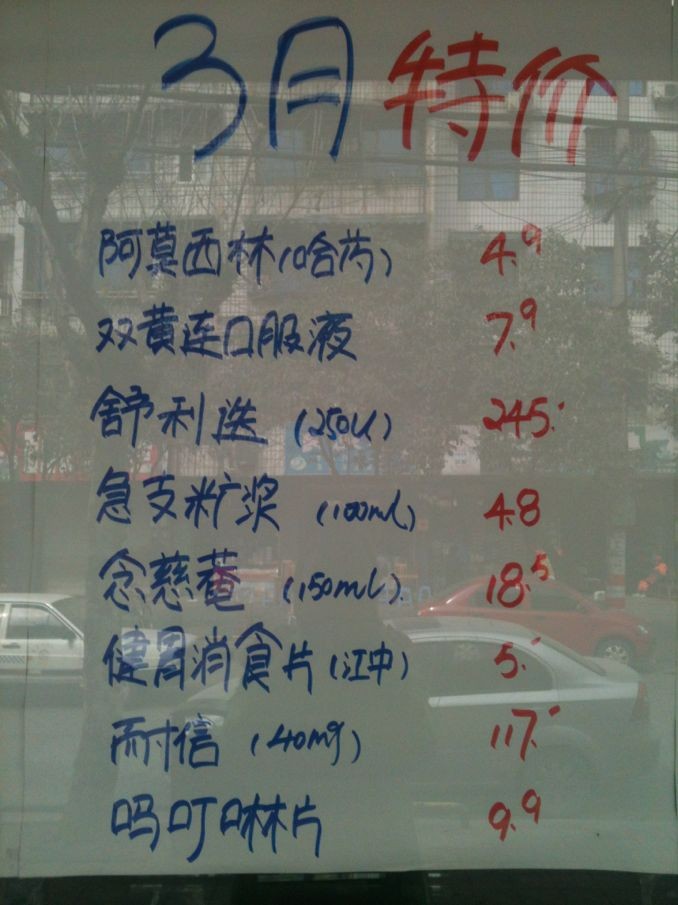 3月特价
阿莫西林(哈药) 4.9
双黄连口服液 7.9
舒利迭 (250U) 245.
急支糖浆 (100ml) 4.8
念慈菴 (150ml) 18.5
健胃消食片(江中) 5.
耐信 (40mg) 117.
吗叮啉片 9.9